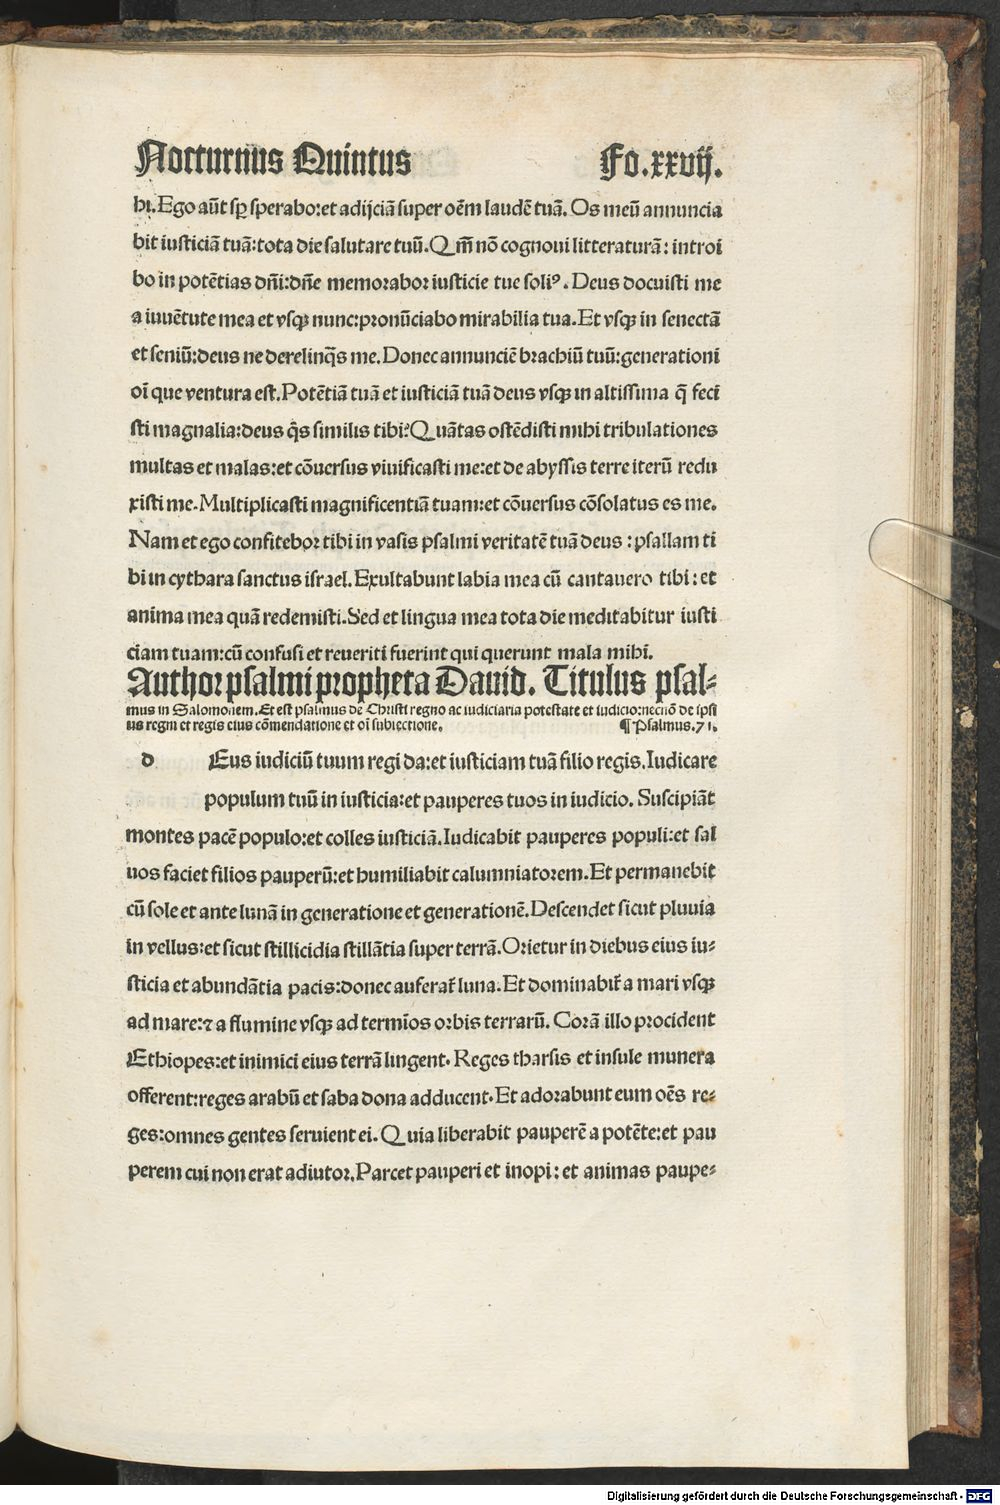 Nocturnus Quintus Fo.xxvij.
hi. Ego aūt sꝑ sperabo: et adijciā super oēm laudē tuā. Os meū annuncia
bit iusticiā tuā: tota die salutare tuū. Qm̄ nō cognoui litteraturā: introi
bo in potētias dn̄i: dn̄e memorabor iusticie tue soliꝰ. Deus docuisti me
a iuuētute mea et vsqꝫ nunc: pronūciabo mirabilia tua. Et vsqꝫ in senectā
et seniū: deus ne derelinq̄s me. Donec annunciē brachiū tuū: generationi
oī que ventura est. Potētiā tuā et iusticiā tuā deus vsqꝫ in altissima q̄ feci
sti magnalia: deus q̄s similis tibi? Quātas ostēdisti mihi tribulationes
multas et malas: et cōuersus viuificasti me: et de abyssis terre iterū redu
xisti me. Multiplicasti magnificentiā tuam: et cōuersus cōsolatus es me.
Nam et ego confitebor tibi in vasis psalmi veritatē tuā deus: psallam ti
bi in cythara sanctus israel. Exultabunt labia mea cū cantauero tibi: et
anima mea quā redemisti. Sed et lingua mea tota die meditabitur iusti
ciam tuam: cū confusi et reueriti fuerint qui querunt mala mihi.
Author psalmi propheta Dauid. Titulus psal⸗
mus in Salomonem. Et est psalmus de Christi regno ac iudiciaria potestate et iudicio: necnō de ipsi
us regni et regis eius cōmendatione et oī subiectione. ¶ Psalmus. 71.
D Eus iudiciū tuum regi da: et iusticiam tuā filio regis. Iudicare
populum tuū in iusticia: et pauperes tuos in iudicio. Suscipiāt
montes pacē populo: et colles iusticiā. Iudicabit pauperes populi: et sal
uos faciet filios pauperū: et humiliabit calumniatorem. Et permanebit
cū sole et ante lunā in generatione et generationē. Descendet sicut pluuia
in vellus: et sicut stillicidia stillātia super terrā. Orietur in diebus eius iu⸗
sticia et abundātia pacis: donec auferat̄ luna. Et dominabit̄ a mari vsqꝫ
ad mare: ⁊ a flumine vsqꝫ ad termīos orbis terrarū. Corā illo procident
Ethiopes: et inimici eius terrā lingent. Reges tharsis et insule munera
offerent: reges arabū et saba dona adducent. Et adorabunt eum oēs re⸗
ges: omnes gentes seruient ei. Quia liberabit pauperē a potēte: et pau
perem cui non erat adiutor. Parcet pauperi et inopi: et animas paupe⸗
Digitalisierung gefördert durch die Deutsche Forschungsgemeinschaft - DFG